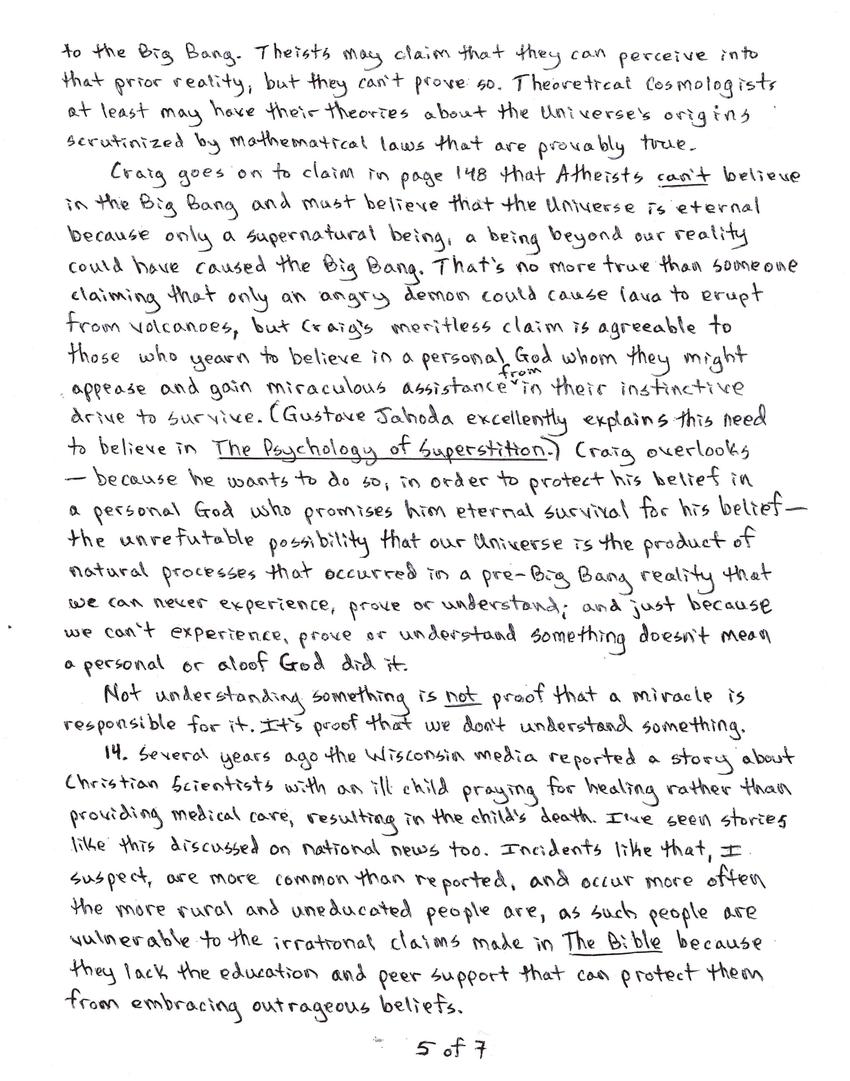 to the Big Bang. Theists may claim that they can perceive into
that prior reality, but they can't prove so. Theoretical Cosmologists
at least may have their theories about the Universe's origins
scrutinized by mathematical laws that are provably true.
Craig goes on to claim in page 148 that Atheists can't believe
in the Big Bang and must believe that the Universe is eternal
because only a supernatural being, a being beyond our reality
could have caused the Big Bang. That's no more true than someone
claiming that only an angry demon could cause lava to erupt
from volcanoes, but Craig's meritless claim is agreeable to
those who yearn to believe in a personal God whom they might
appease and gain miraculous assistance from in their instinctive
drive to survive. (Gustave Jahoda excellently explains this need
to believe in The Psychology of Superstition.) Craig overlooks
— because he wants to do so, in order to protect his belief in
a personal God who promises him eternal survival for his belief—
the unrefutable possibility that our Universe is the product of
natural processes that occurred in a pre-Big Bang reality that
we can never experience, prove or understand; and just because
we can't experience, prove or understand something doesn't mean
a personal or aloof God did it.
Not understanding something is not proof that a miracle is
responsible for it. It's proof that we don't understand something.
14. Several years ago the Wisconsin media reported a story about
Christian Scientists with an ill child praying for healing rather than
providing medical care, resulting in the child's death. I've seen stories
like this discussed on national news too. Incidents like that, I
suspect, are more common than reported, and occur more often
the more rural and uneducated people are, as such people are
vulnerable to the irrational claims made in The Bible because
they lack the education and peer support that can protect them
from embracing outrageous beliefs.
5 of 7